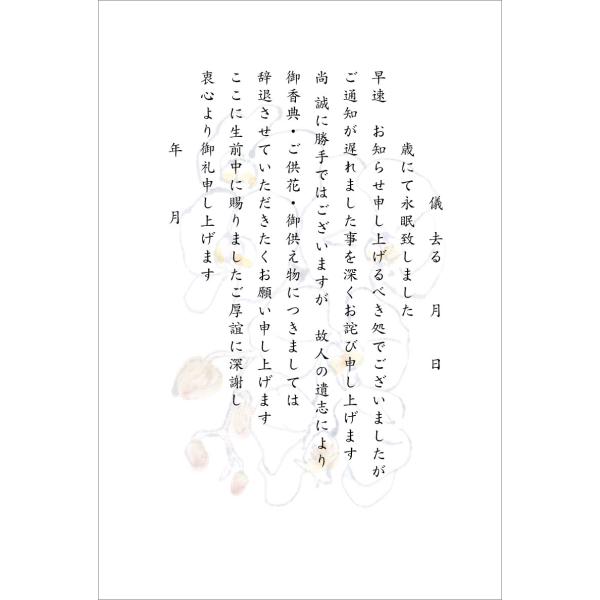 儀 去る 月 日
歳にて永眠致しました
早速 お知らせ申し上げるべき処でございましたが
ご通知が遅れました事を深くお詫び申し上げます
尚 誠に勝手ではございますが 故人の遺志により
御香典・ご供花・御供え物につきましては
辞退させていただきたくお願い申し上げます
ここに生前中に賜りましたご厚誼に深謝し
衷心より御礼申し上げます
年 月